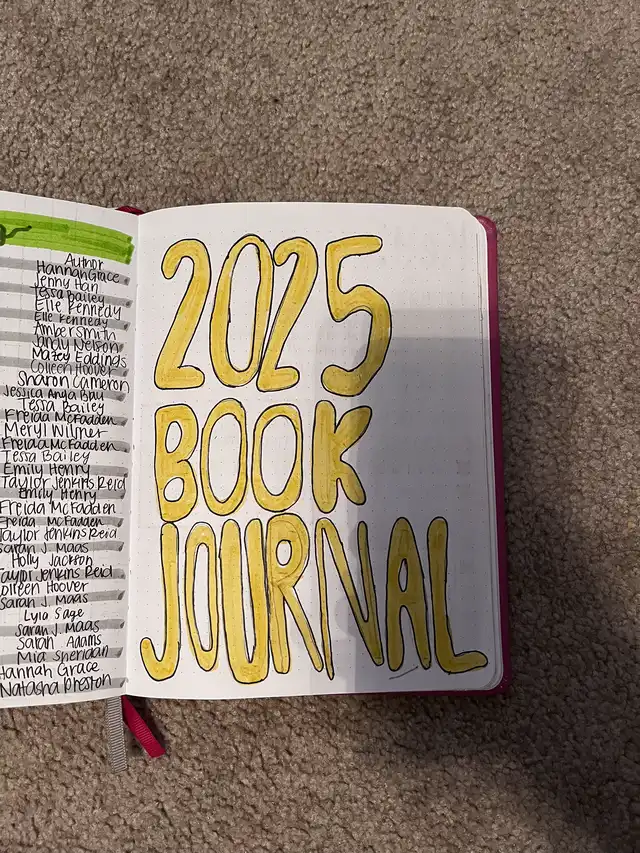 Author
Hannah Grace
Jenny Han
Tessa Bailey
Elle Kennedy
Elle Kennedy
Amber Smith
Jandy Nelson
Mazey Eddings
Colleen Hoover
Sharon Cameron
Jessica Anya Blau
Tessa Bailey
Freida McFadden
Meryl Wilner
Freida McFadden
Tessa Bailey
Emily Henry
Taylor Jenkins Reid
Emily Henry
Freida McFadden
Freida McFadden
Taylor Jenkins Reid
Sarah J. Maas
Holly Jackson
Taylor Jenkins Reid
Colleen Hoover
Sarah J. Maas
Lyla Sage
Sarah J. Maas
Sarah Adams
Mia Sheridan
Hannah Grace
Natasha Preston
2025
BOOK
JOURNAL